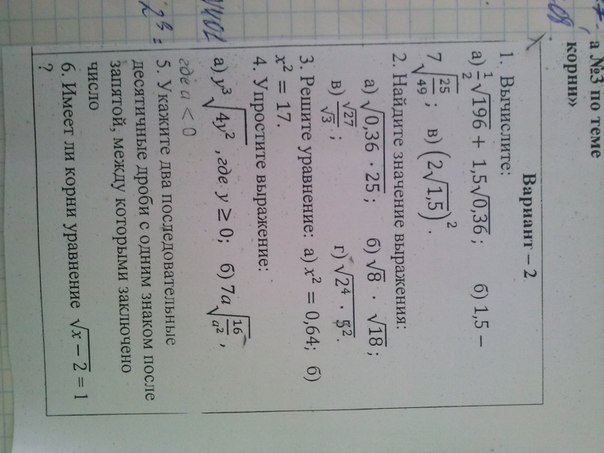 а №3 по теме
корни»
Вариант – 2
1. Вычислите:
а) $\frac{1}{2}\sqrt{196} + 1,5\sqrt{0,36}$; б) 1,5 –
$7\sqrt{\frac{25}{49}}$; в) $(2\sqrt{1,5})^2$.
2. Найдите значение выражения:
а) $\sqrt{0,36 \cdot 25}$; б) $\sqrt{8} \cdot \sqrt{18}$;
в) $\frac{\sqrt{27}}{\sqrt{3}}$; г) $\sqrt{2^4 \cdot 5^2}$.
3. Решите уравнение: а) $x^2 = 0,64$; б)
$x^2 = 17$.
4. Упростите выражение:
а) $y^3\sqrt{4y^2}$, где $y \geq 0$; б) $7a\sqrt{\frac{16}{a^2}}$,
где a < 0
5. Укажите два последовательные
десятичные дроби с одним знаком после
запятой, между которыми заключено
число
6. Имеет ли корни уравнение $\sqrt{x-2} = 1$
?